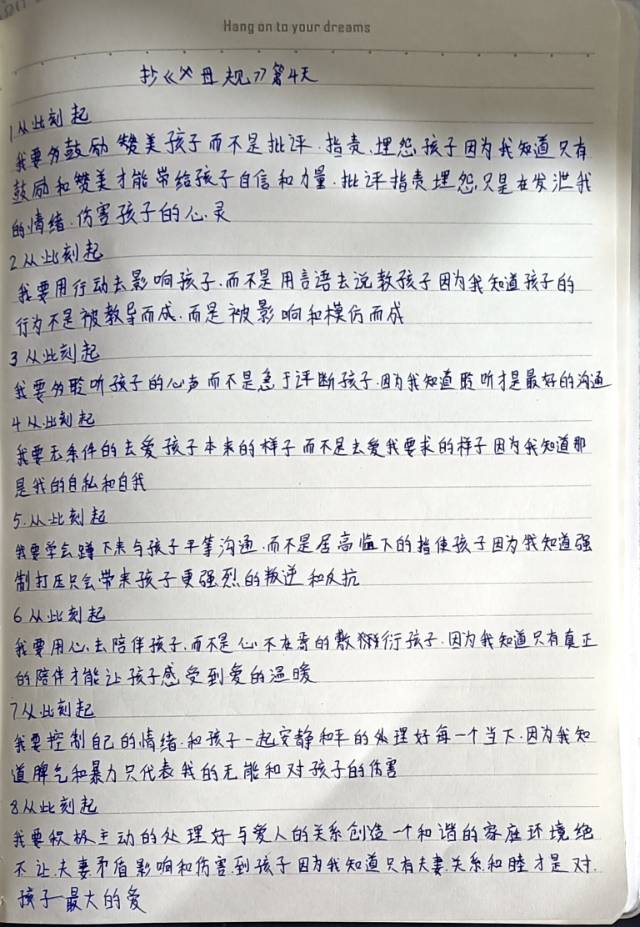 Hang on to your dreams
抄《父母规》第4天
1从此刻起
我要多鼓励赞美孩子而不是批评.指责.埋怨孩子因为我知道只有
鼓励和赞美才能带给孩子自信和力量.批评指责埋怨只是在发泄我
的情绪.伤害孩子的心灵
2从此刻起
我要用行动去影响孩子.而不是用言语去说教孩子因为我知道孩子的
行为不是被教导而成.而是被影响和模仿而成
3从此刻起
我要多聆听孩子的心声而不是急于评断孩子.因为我知道聆听才是最好的沟通
4从此刻起
我要无条件的去爱孩子本来的样子而不是去爱我要求的样子因为我知道那
是我的自私和自我
5.从此刻起
我要学会蹲下来与孩子平等沟通.而不是居高临下的指使孩子因为我知道强
制打压只会带来孩子更强烈的叛逆和反抗
6从此刻起
我要用心去陪伴孩子.而不是心不在焉的敷衍孩子.因为我知道只有真正
的陪伴才能让孩子感受到爱的温暖
7从此刻起
我要控制自己的情绪.和孩子一起安静和平的处理好每一个当下.因为我知
道脾气和暴力只代表我的无能和对孩子的伤害
8从此刻起
我要积极主动的处理好与爱人的关系创造一个和谐的家庭环境绝
不让夫妻矛盾影响和伤害到孩子因为我知道只有夫妻关系和睦才是对
孩子最大的爱